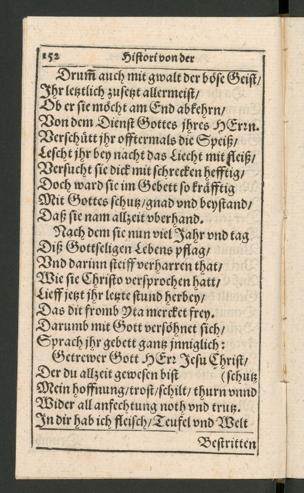 152 Histori von der
Drum̃ auch mit gwalt der böse Geist/
Jhr letztlich zusetzt allermeist/
Ob er sie möcht am End abkehrn/
Von dem Dienst Gottes jhres HErꝛn.
Verschütt jhr offtermals die Speiß/
Lescht jhr bey nacht das Liecht mit fleiß/
Versucht sie dick mit schrecken hefftig/
Doch ward sie im Gebett so kräfftig
Mit Gottes schutz/gnad vnd beystand/
Daß sie nam allzeit vberhand.
Nach dem sie nun viel Jahr vnd tag
Diß Gottseligen Lebens pflag/
Vnd darinn steiff verharren that/
Wie sie Christo versprochen hatt/
Lieff jetzt jhr letzte stund herbey/
Das dit fromb Yta mercket frey.
Darumb mit Gott versöhnet sich/
Sprach jhr gebett gantz jnniglich:
Getrewer Gott HErꝛ Jesu Christ/
Der du allzeit gewesen bist (schutz
Mein hoffnung/trost/schilt/ thurn vnnd
Wider all anfechtung noth vnd trutz.
In dir hab ich fleisch/Teufel vnd Welt
Bestritten